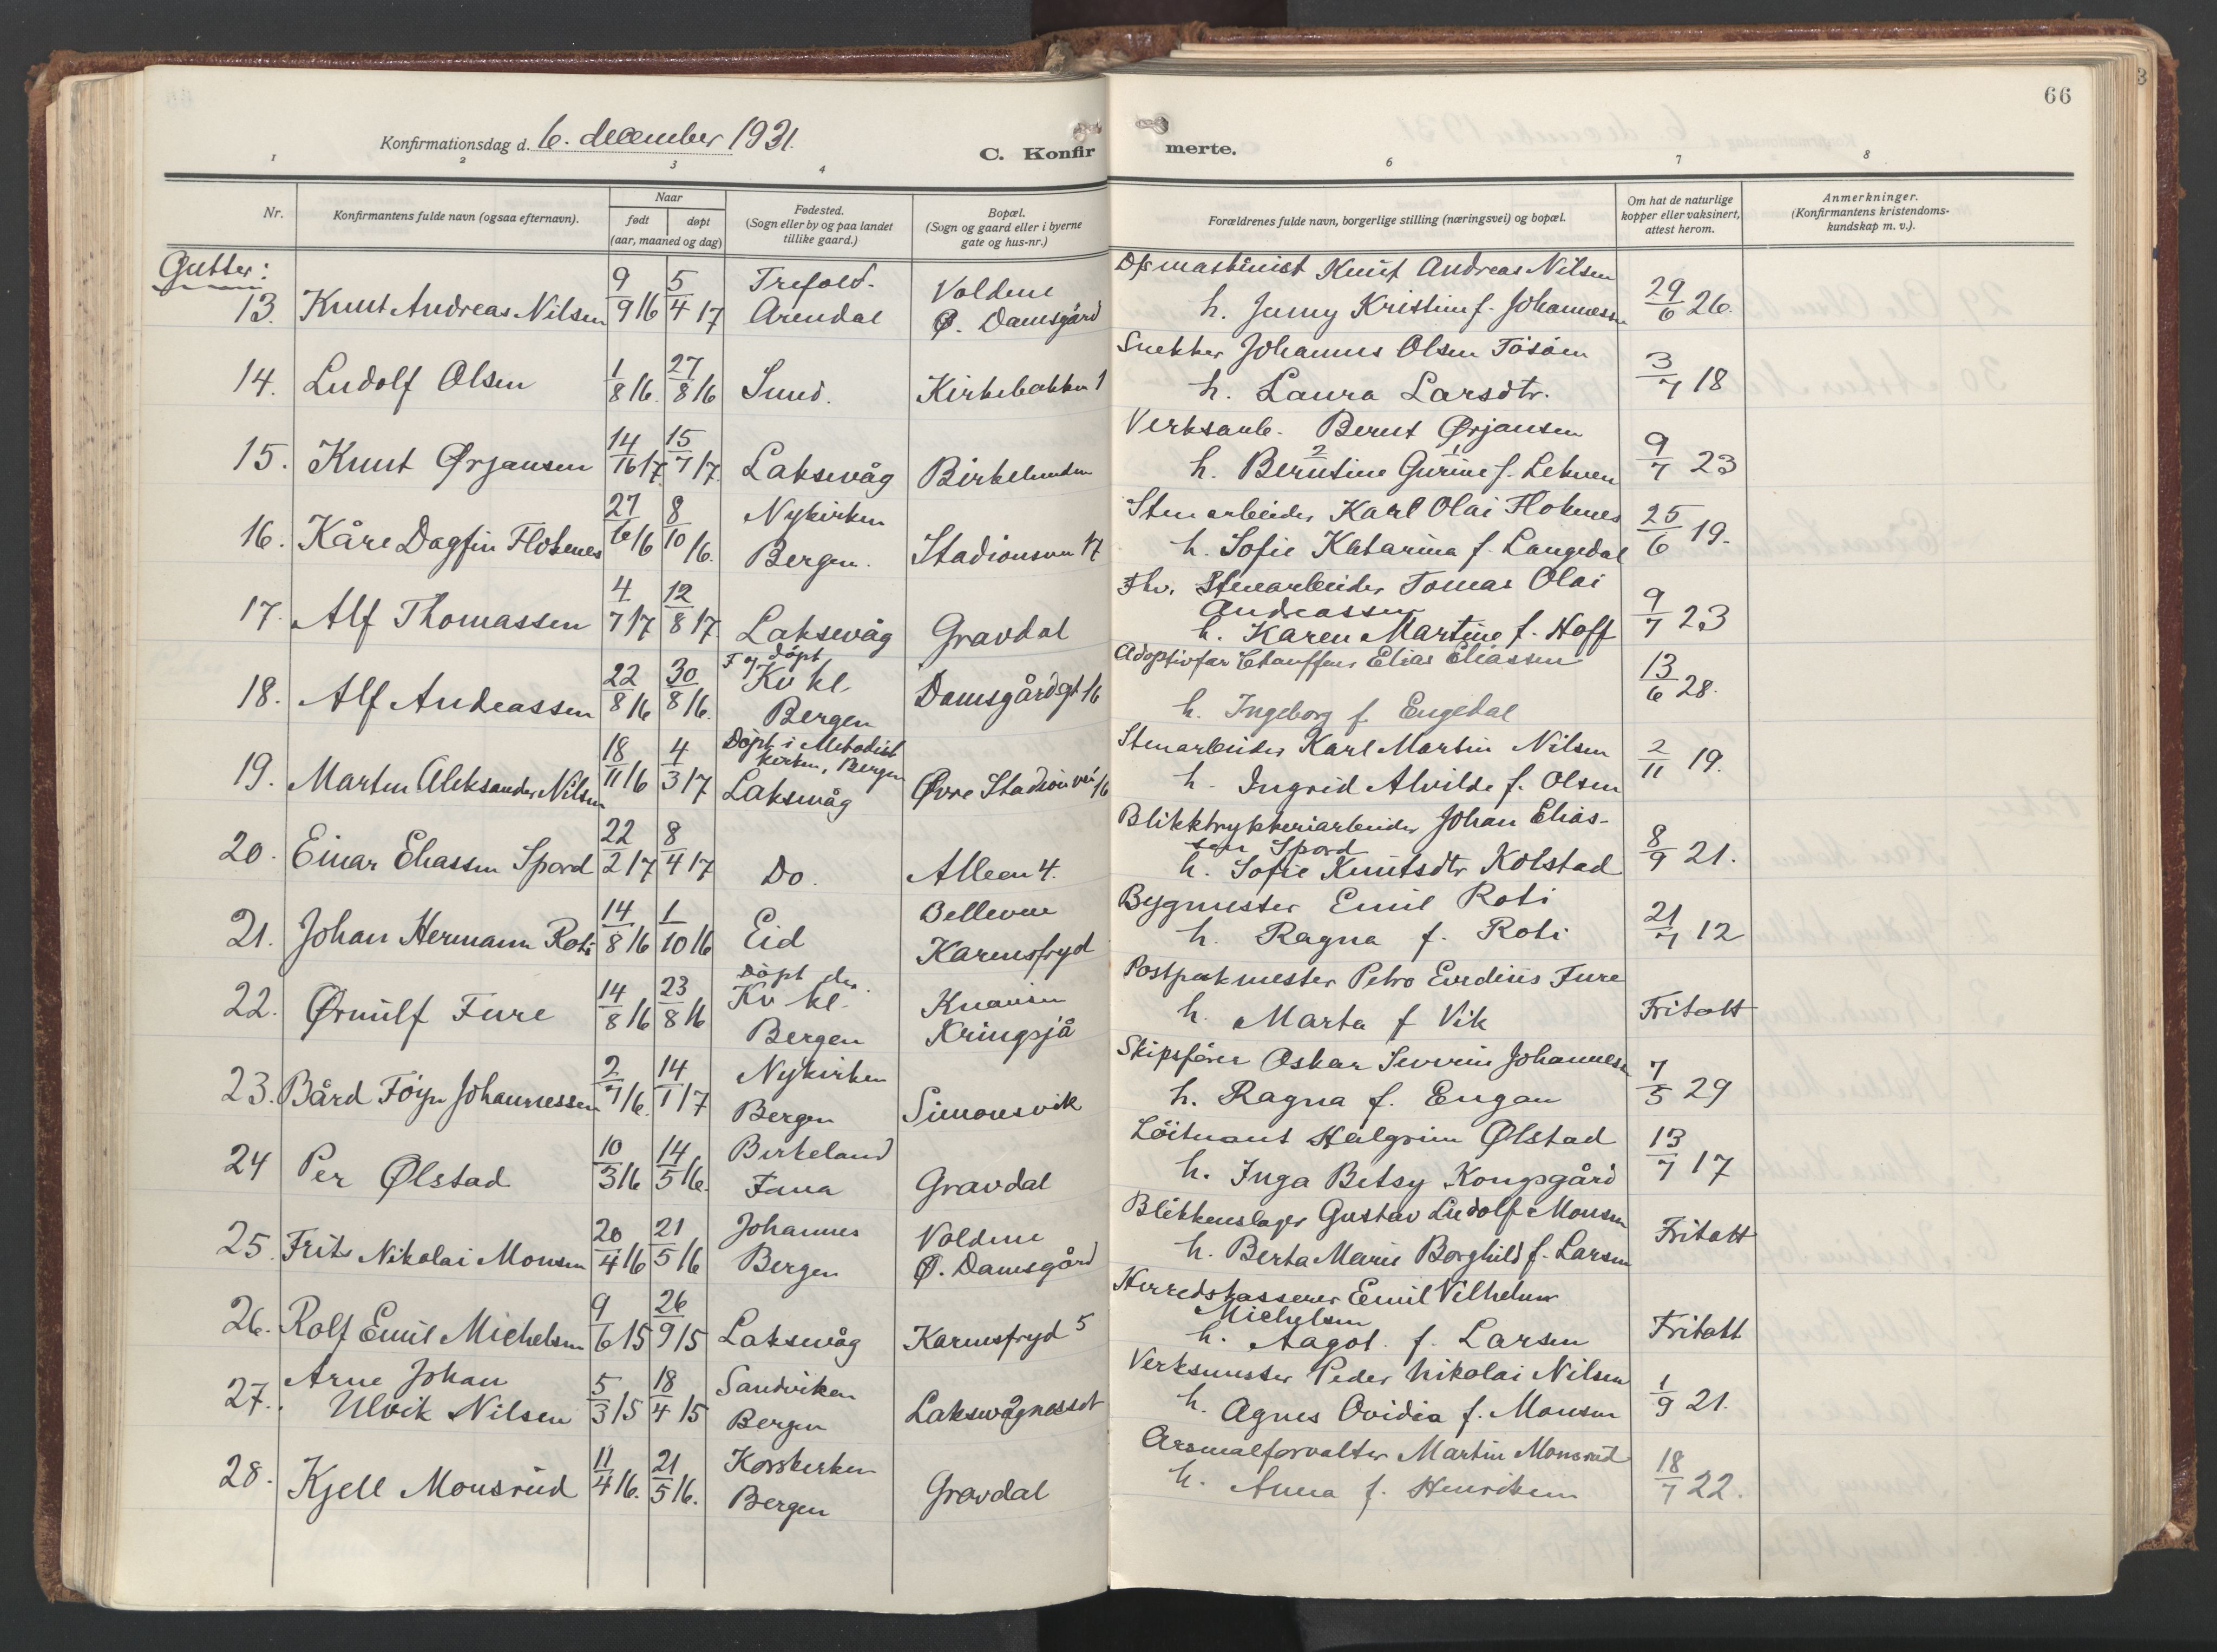 66
Konfirmationsdag d. 6. december 1931.
C. Konfir merte.
1 2 3 4 6 7 8
Nr.
Konfirmantens fulde navn (ogsaa efternavn).
Naar
født døpt
(aar, maaned og dag)
Fødested.
(Sogn eller by og paa landet
tillike gaard.)
Bopæl.
(Sogn og gaard eller i byerne
gate og hus-nr.)
Forældrenes fulde navn, borgerlige stilling (næringsvei) og bopæl.
Om hat de naturlige
kopper eller vaksinert,
attest herom.
Anmerkninger.
(Konfirmantens kristendoms-
kundskap m. v.).
Gutter:
13. Knut Andreas Nilsen 9/9 16 5/4 17 Trefold.
Arendal
Voldene
Ø. Damsgård
D/s maskinist Knut Andreas Nilsen
h. Jenny Kristine f. Johannessen
29/6 26.
14. Ludolf Olsen 1/8 16. 27/8 16 Sund. Kirkebakken 1
Snekker Johannes Olsen Tösöen
h. Laura Larsdtr.
3/7 18
15. Knut Ørjansen 14/16 17. 15/7 17. Laksevåg Birkelunden
Verksarb. Bernt Ørjansen
2 1
h. Berntine Gurine f. Lekven
9/7 23
16. Kåre Dagfin Flotenes 27/6 16 8/10 16. Nykirken
Bergen. Stadionsvn 17
Stenarbeider Karl Olai Flotenes
h. Sofie Katarina f. Langedal
25/6 19.
17. Alf Thomassen 4/7 17 12/8 17 Laksevåg Gravdal
Fhv. Stenarbeider Tomas Olai
Andreassen
h. Karen Martine f. Hoff
9/7 23
18. Alf Andreassen 22/8 16 30/8 16. F og döpt
Kv kl.
Bergen
Damsgårdgt 16
Adoptivfar Chauffeur Elias Eliassen
h. Ingeborg f. Engedal
13/6 28.
19. Martin Aleksander Nilsen 18/11 16 4/3 17 Döpt i Metodist
kirken, Bergen
Laksevåg
Øvre Stadionvei 16
Stenarbeider Karl Martin Nilsen
h. Ingrid Alvilde f. Olsen
2/11 19.
20. Einar Eliassen Spord 22/2 17 8/4 17 Do. Alleen 4.
Blikktrykkeriarbeider Johan Elias-
sen Spord
h. Sofie Knutsdtr Kolstad
8/9 21.
21. Johan Hermann Roti 14/8 16 1/10 16 Eid
Bellevue
Karensfryd
Bygmester Emil Roti
h. Ragna f. Roti
21/7 12
22. Ørnulf Fure 14/8 16 23/8 16 Döpt der.
Kv kl.
Bergen
Knausen
Kringsjå
Postpakmester Petro Evedius Fure
h. Marta f Vik
Fritatt
23. Bård Föyn Johannessen 2/7 16. 14/1 17 Nykirken
Bergen
Simonsvik
Skipsförer Oskar Severin Johannessen
h. Ragna f. Engan
7/5 29
24 Per Ølstad 10/3 16 14/5 16. Birkeland
Fana
Gravdal
Löitnant Halgrim Ølstad
h. Inga Betsy Kongsgård
13/7 17
25. Frits Nikolai Monsen 20/4 16 21/5 16 Johannes
Bergen
Voldene
Ø. Damsgård
Blikkenslager Gustav Ludolf Monsen
h. Berta Marie Borghild f. Larsen
Fritatt
26. Rolf Emil Michelsen 9/6 15 26/9 15 Laksevåg Karensfryd 5
Herredskasserer Emil Vilhelm
Michelsen
h. Aagot. f. Larsen
Fritatt
27. Arne Johan
Ulvik Nilsen 5/3 15 18/4 15 Sandviken
Bergen
Laksevågnesset
Verksmester Peder Nikolai Nilsen
h. Agnes Ovidia f. Monsen
1/9 21.
28. Kjell Monsrud 11/4 16. 21/5 16. Korskirken
Bergen
Gravdal
Arsenalforvalter Martin Monsrud
h. Anna f. Henriksen
18/7 22.